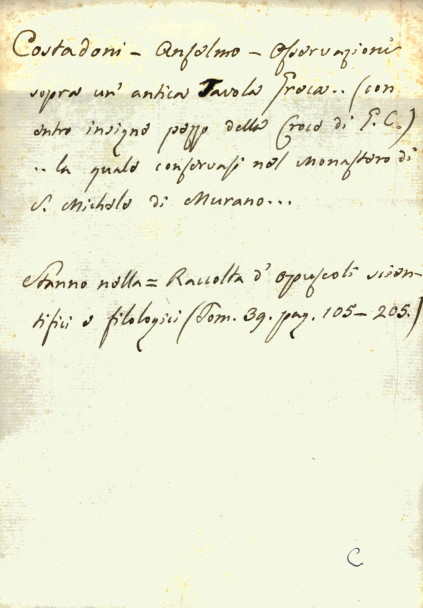 Costadoni - Anselmo - Osservazioni
sopra un' antica Tavola Greca.. (con
entro insigne pezzo della Croce di G. C.)
.. la quale conservasi nel Monastero di
S. Michele di Murano...
Stanno nella = Raccolta d' opuscoli scien-
tifici e filologici (Tom. 39. pag. 105 - 205.)
C